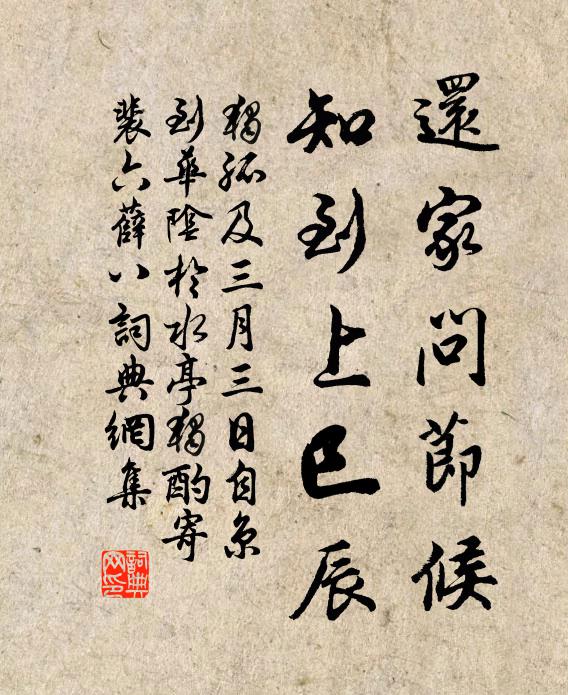 還家問節候
知到上巳辰
獨孤及三月三日自京
到華陰於水亭獨酌寄
裴六薛八詞典網集
詞典
网印